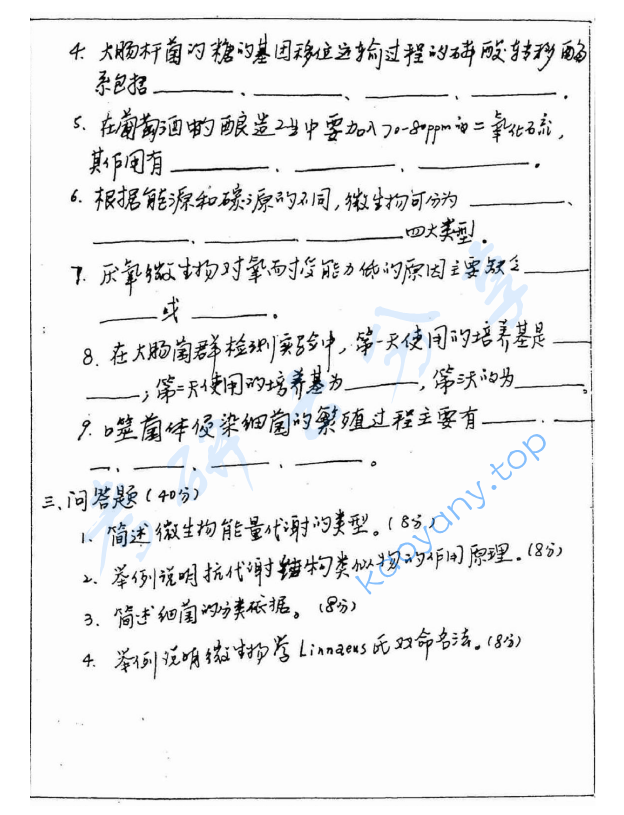 4. 大肠杆菌的糖的基团移位运输过程的磷酸转移酶
系包括________、________、________、________、________。
5. 在葡萄酒中的酿造工艺中要加入70-80ppm的二氧化硫，
其作用有________、________、________、________。
6. 根据能源和碳源的不同，微生物可分为________、
________、________、________四大类型。
7. 厌氧微生物对氧耐受能力低的原因主要缺乏________
________或________。
8. 在大肠菌群检测实验中，第一天使用的培养基是____
____，第二天使用的培养基为________，第三天的为________。
9. 噬菌体侵染细菌的繁殖过程主要有________、____
__、________、________、________。
三、问答题（40分）
1. 简述微生物能量代谢的类型。（8分）
2. 举例说明抗代谢结构类似物的作用原理。（8分）
3. 简述细菌的分类依据。（8分）
4. 举例说明微生物学Linnaeus氏双命名法。（8分）
kaoyany.top